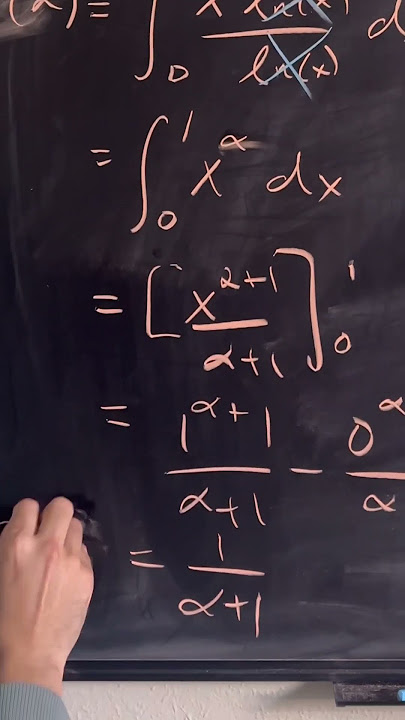 (α) = ∫₀ x^α ln(x) / ln(x) d
= ∫₀¹ x^α dx
= [x^(α+1) / α+1]₀¹
= 1^(α+1) / α+1 − 0^α / α
= 1 / α+1